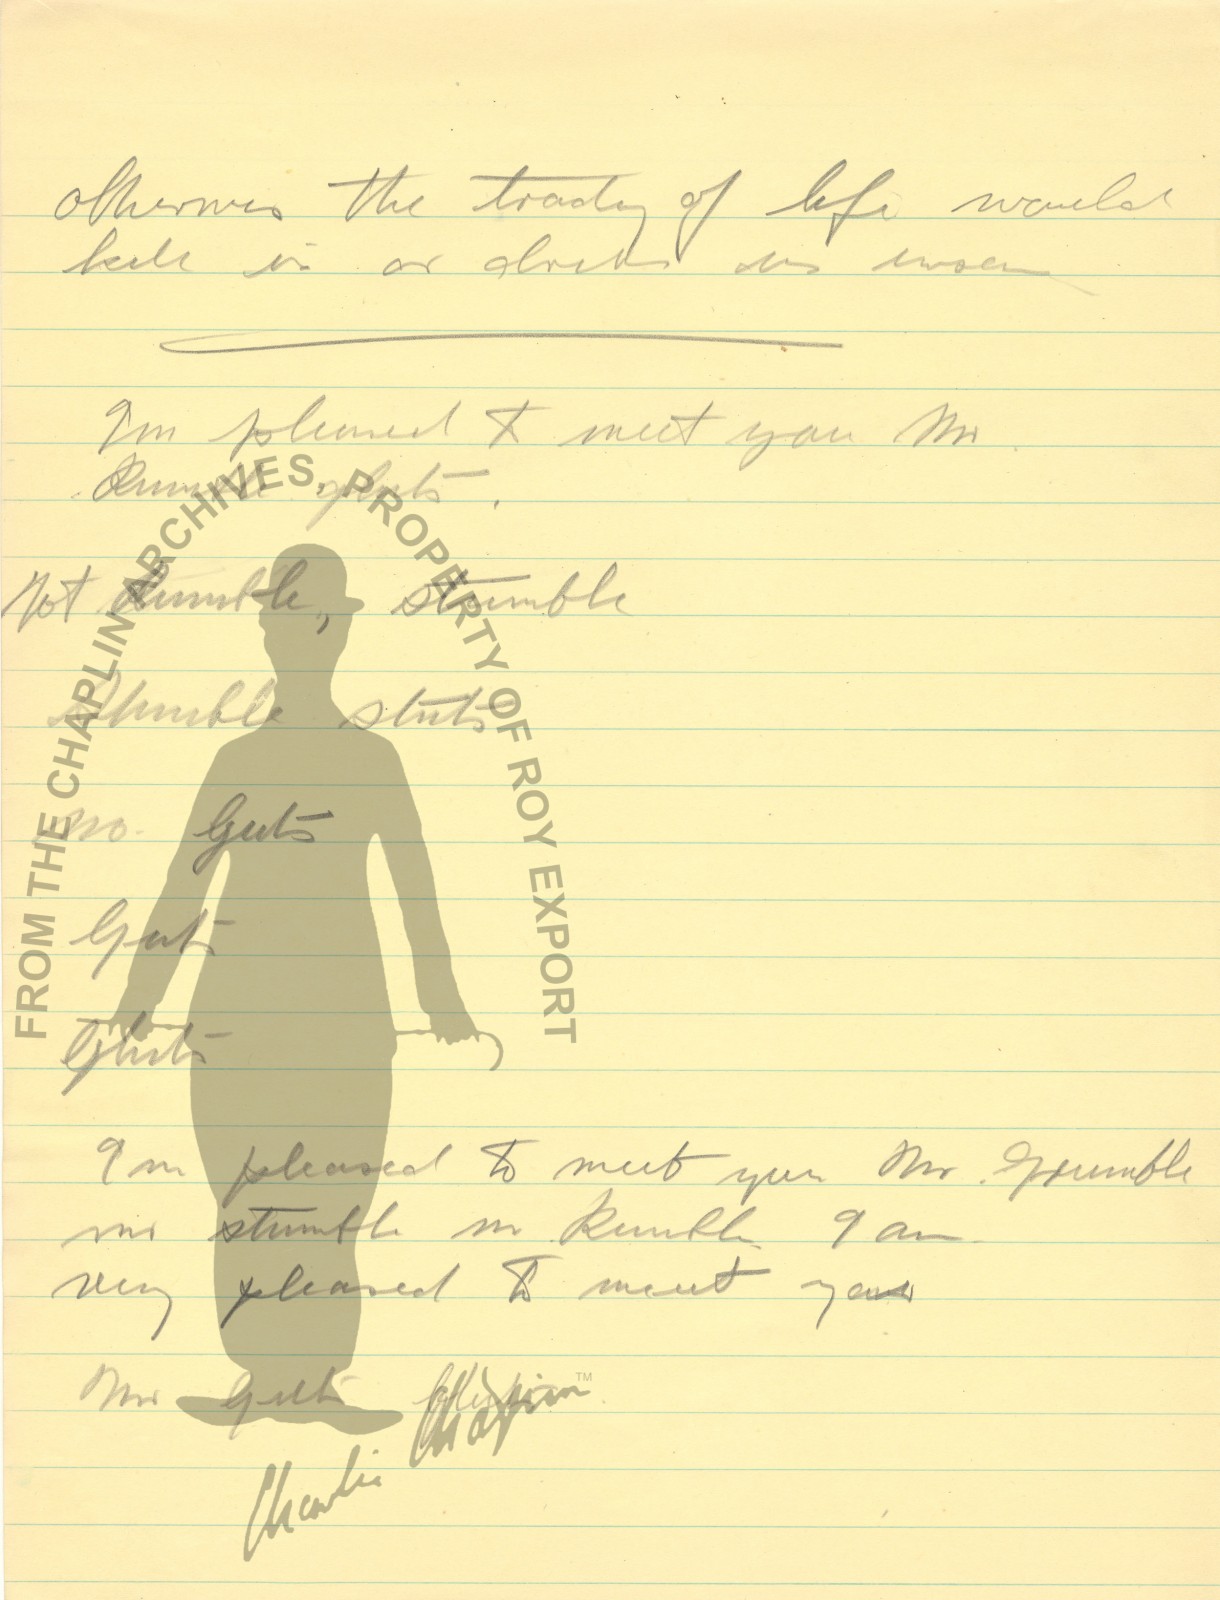 otherwis the tradey of life would
kill us or drive us insan
I'm pleased to meet you Mr
Rumble gluts.
Not Rumble, stumble
Stumble stuts
No. Guts
Guts
Gluts
I'm pleased to meet you Mr. Grumble
mr stumble mr Rumble I am
very pleased to meet you
Mr Guts
FROM THE CHAPLIN ARCHIVES, PROPERTY OF ROY EXPORT
Charlie Chaplin™